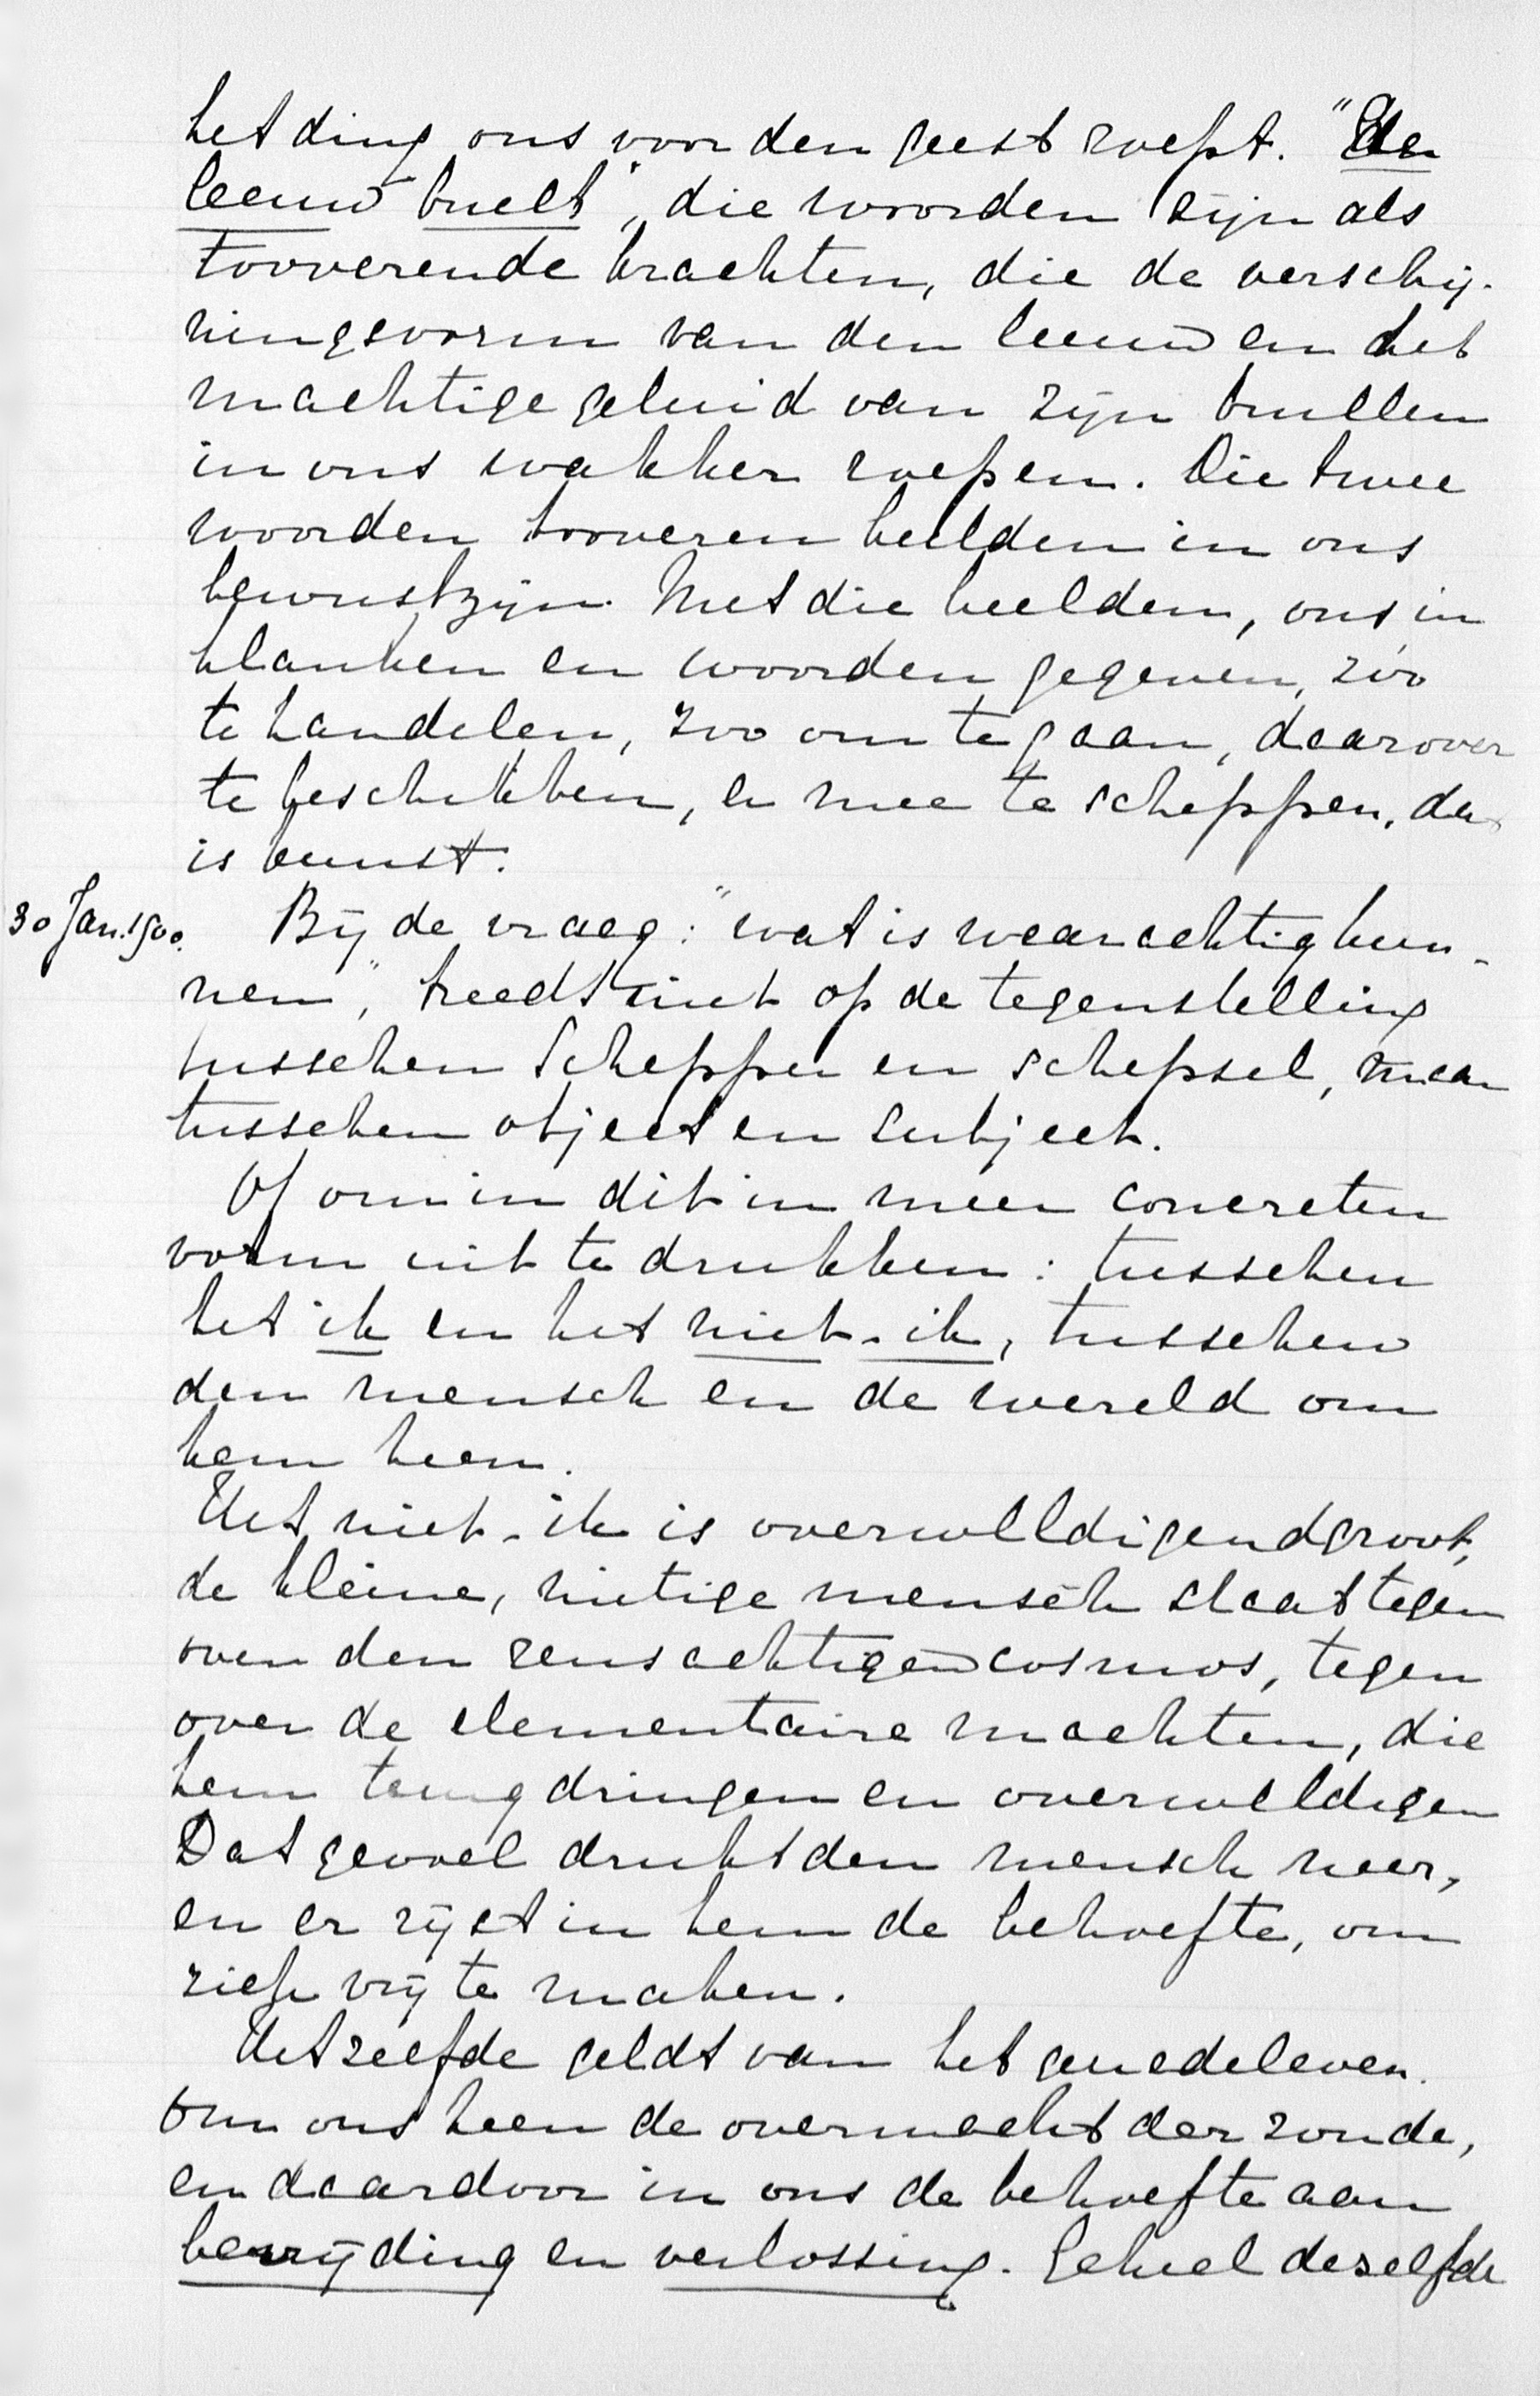 het ding ons voor den geest roept. "De
leeuw brult", die woorden zijn als
tooverende krachten, die de verschij-
ningsvorm van den leeuw en het
machtige geluid van zijn brullen
in ons wakker roepen. Die twee
woorden tooveren beelden in ons
bewustzijn. Met die beelden, ons in
klanken en woorden gegeven, zóo
te handelen, zoo om te gaan, daarover
te beschikken, er mee te scheppen, da
is kunst.
30 Jan. 1900. Bij de vraag: "wat is waarachtig kun-
nen", treedt niet op de tegenstelling
tusschen Schepper en schepsel, maar
tusschen object en subject.
Of om in dit in meer concreten
vorm uit te drukken: tusschen
het ik en het niet-ik, tusschen
den mensch en de wereld om
hem heen.
Het niet-ik is overweldigend groot,
de kleine, nietige mensch staat tegen
over den reusachtigen cosmos, tegen
over de elementaire machten, die
hem terugdringen en overweldigen
Dat gevoel drukt den mensch neer,
en er rijst in hem de behoefte, om
zich vrij te maken.
Hetzelfde geldt van het genadeleven.
Om ons heen de overmacht der zonde,
en daardoor in ons de behoefte aan
bevrijding en verlossing. Geheel dezelfde